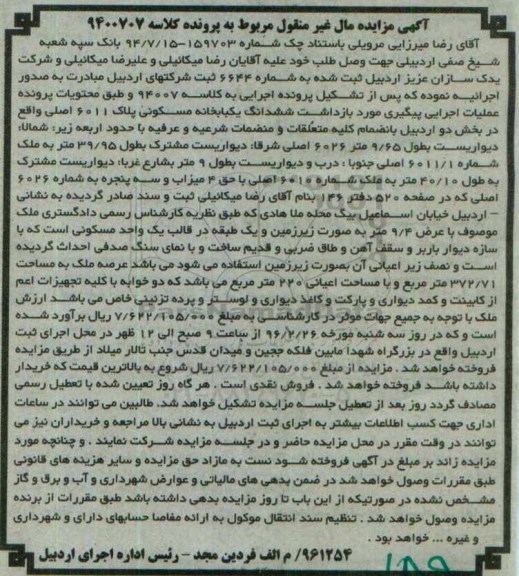 آگهی مزایده مال غیر منقول مربوط به پرونده کلاسه ۹۴۰۰۷۰۷
آقای رضا میرزایی مرویلی باستناد چک شماره ۱۵۹۷۰۳-۹۴/۷/۱۵ بانک سپه شعبه
شیخ صفی اردبیلی جهت وصل طلب خود علیه آقایان رضا میکائیلی و علیرضا میکائیلی و شرکت
یدک سازان عزیز اردبیل ثبت شده به شماره ۶۶۴۴ ثبت شرکتهای اردبیل مبادرت به صدور
اجرائیه نموده که پس از تشکیل پرونده اجرایی به کلاسه ۹۴۰۰۷ و طبق محتویات پرونده
عملیات اجرایی پیگیری مورد بازداشت ششدانگ یکبابخانه مسکونی پلاک ۶۰۱۱ اصلی واقع
در بخش دو اردبیل بانضمام کلیه متعلقات و منضمات شرعیه و عرفیه با حدود اربعه زیر: شمالا:
دیواریست بطول ۹/۶۵ متر ۶۰۲۶ اصلی شرقا: دیواریست مشترک بطول ۳۹/۹۵ متر به ملک
شماره ۶۰۱۱/۱ اصلی جنوبا : درب و دیواریست بطول ۹ متر بشارع غربا: دیواریست مشترک
به طول ۴۰/۱۰ متر به ملک شماره ۶۰۱۰ اصلی با حق ۴ میزاب و سه پنجره به شماره ۶۰۲۶
اصلی که در صفحه ۵۲۰ دفتر بنام آقای رضا میکائیلی ثبت و سند صادر گردیده به نشانی
- اردبیل خیابان اسماعیل بیک محله ملا هادی که طبق نظریه کارشناس رسمی دادگستری ملک
موصوف با عرض ۹/۴ متر به صورت زیرزمین و یک طبقه در قالب یک واحد مسکونی است که با
سازه دیوار باربر و سقف آهن و طاق ضربی و قدیم ساخت و با نمای سنگ صدفی احداث گردیده
است و نصف زیر اعیانی آن بصورت زیرزمین استفاده می شود می باشد عرصه ملک به مساحت
۳۷۲/۷۱ متر مربع و با مساحت اعیانی ۲۲۰ متر مربع می باشد که دو خوابه با کلیه تجهیزات اعم
از کابینت و کمد دیواری و پارکت و کاغذ دیواری و لوستر و پرده تزئینی خاص می باشد ارزش
ملک با توجه به جمیع جهات موثر در کارشناسی به مبلغ ۷/۶۲۲/۱۰۵/۰۰۰ ریال برآورد شده
است و که در روز سه شنبه مورخه ۹۶/۲/۲۶ از ساعت ۹ صبح الی ۱۲ ظهر در محل اجرای ثبت
اردبیل واقع در بزرگراه شهدا مابین فلکه ججین و میدان قدس جنب تالار میلاد از طریق مزایده
فروخته خواهد شد . مزایده از مبلغ ۷/۶۲۲/۱۰۵/۰۰۰ ریال شروع به بالاترین قیمت که خریدار
داشته باشد فروخته خواهد شد . فروش نقدی است . هر گاه روز تعیین شده با تعطیل رسمی
مصادف گردد روز بعد از تعطیل جلسه مزایده تشکیل خواهد شد. طالبین می توانند در ساعات
اداری جهت کسب اطلاعات بیشتر به اجرای ثبت اردبیل به نشانی بالا مراجعه و خریداران نیز می
توانند در وقت مقرر در محل مزایده حاضر و در جلسه مزایده شرکت نمایند . و چنانچه مورد
مزایده زائد بر مبلغ در آگهی فروخته شود نست به مازاد حق مزایده و سایر هزینه های قانونی
طبق مقررات وصول خواهد شد در ضمن بدهی های مالیاتی و عوارض شهرداری و آب و برق و گاز
مشخص نشده در صورتیکه از این باب تا روز مزایده بدهی داشته باشد طبق مقررات از برنده
مزایده وصول خواهد شد . تنظیم سند انتقال موکول به ارائه مفاصا حسابهای دارای و شهرداری
و غیره ... خواهد بود .
۹۶۱۲۵۴/ م الف فردین مجد - رئیس اداره اجرای اردبیل